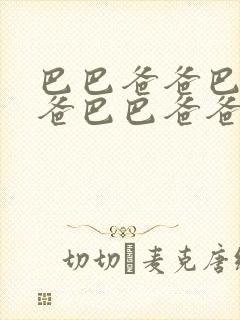 巴巴爸爸巴
爸巴巴爸爸
切切 麦克唐纳